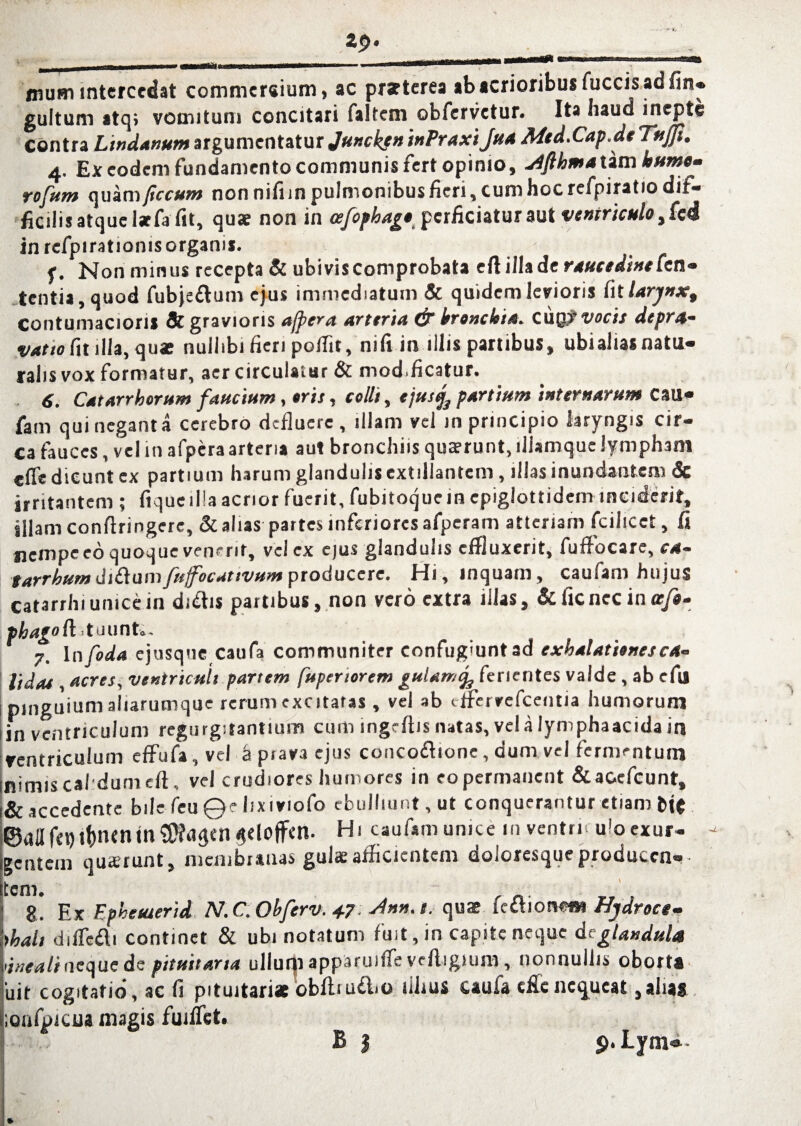 29.
mum intercedat commercium, ac præterea ab acrioribus succis ad sin-
gultum atq; vomitum concitari saltem observetur. Ita haud ineptè
contra Lindanum argumentatur Juncken in Praxi sua Med. Cap. de Tussi.
4. Ex eodem fundamento communis fert opinio, Asthma tàm humo-
rosum quàm siccum non nisi in pulmonibus fieri, cum hoc respiratio dif-
ficilis atque læsa sit, quæ non in œsophago perficiatur aut ventriculo, sed
in respirationis organis.
5. Non minus recepta & ubivis comprobata est illa de raucedine sen-
tentia, quod subjectum ejus immediatum & quidem levioris sit larynx,
contumacioris & gravioris aspera arteria & bronchia. cùm vocis depra-
vatio sit illa, quæ nullibi fieri possit, nisi in illis partibus, ubi alias natu-
ralis vox formatur, aer circulatur & modificatur.
6. Catarrhorum faucium, oris, colli, ejusq; partium internarum cau-
sam qui negant â cerebro defluere, illam vel in principio laryngis cir-
ca fauces, vel in aspèra arteria aut bronchiis quærunt, illamque lympham
esse dicunt ex partium harum glandulis extillantem, illas inundantem &
irritantem; sique illa acrior fuerit, subitoque in epiglottidem inciderit,
illam constringere, & alias partes inferiores asperam atteriam scilicet, si
nempe eò quoque venerit, vel ex ejus glandulis effluxerit, suffocare, ca-
tarrhum dictum suffocativum producere. Hi, inquam, causam hujus
catarrhi unicè in dictis partibus, non verò extra illas, & sic nec in œso-
phago statuunt.
7. In soda ejusque causa communiter confugiunt ad exhalationes ca-
lidas, acres, ventriculi partem superiorem gulamq; ferientes valde, ab esu
pinguium aliarumque rerum excitatas, vel ab effervescentia humorum
in ventriculum regurgitantium cum ingestis natas, vel à lympha acida in
ventriculum effusa, vel â prava ejus concoctione, dum vel fermentum
nimis calidum est, vel crudiores humores in eo permanent & acescunt,
& accedente bile seu ⊖e lixivioso ebulliunt, ut conquerantur etiam die
Gall sey ihnen in Magen geloffen. Hi causam unicè in ventriculo exur-
gentem quærunt, membranas gulæ afficientem doloresque producen-
tem.
8. Ex Ephemerid N. C. Observ. 47. Ann. 1. quæ sectionem Hydroce-
phali dissecti continet & ubi notatum fuit, in capite neque de glandula
pineali neque de pituitaria ullum apparuisse vestigium, nonnullis oborta
fuit cogitatio, ac si pituitariæ obstructio illius causa esse nequeat, alias
conspicua magis fuisset.
B 3
9. Lym-